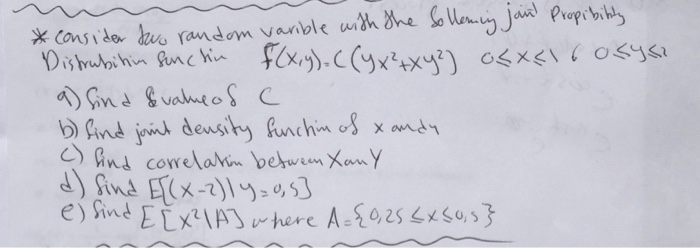 * consider two random varible with the following joint Propibibity
Distrubition function F(x,y)=C(yx²+xy²) 0≤x≤1 , 0≤y≤2
a) find & value of C
b) find joint density function of x and y
c) find correlation between X an Y
d) find E[(x-2)|y=0,5]
e) find E[X²|A] where A={0,25≤x≤0,5}